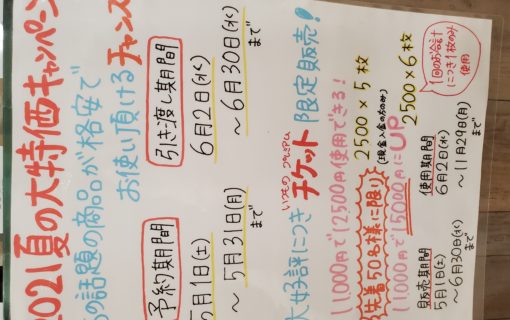 2021夏の大特価キャンペーン
の話題の商品が格安で
お使い頂けるチャンス
予約期間
5月1日(土)
～5月31日(月)
まで
引き渡し期間
6月2日(水)
～6月30日(水)
まで
大好評につき
いつもの プレミアム
チケット 限定販売!
11000円で12500円使用できる!
2500×5枚
(現金入金の方のみ)
先着50名様に限り
11000円で15000円にUP
2500×6枚
1回のお会計
につき1枚のみ
使用
販売期間
5月1日(土)
～6月30日(水)
まで
使用期間
6月2日(水)
～11月29日(月)
まで